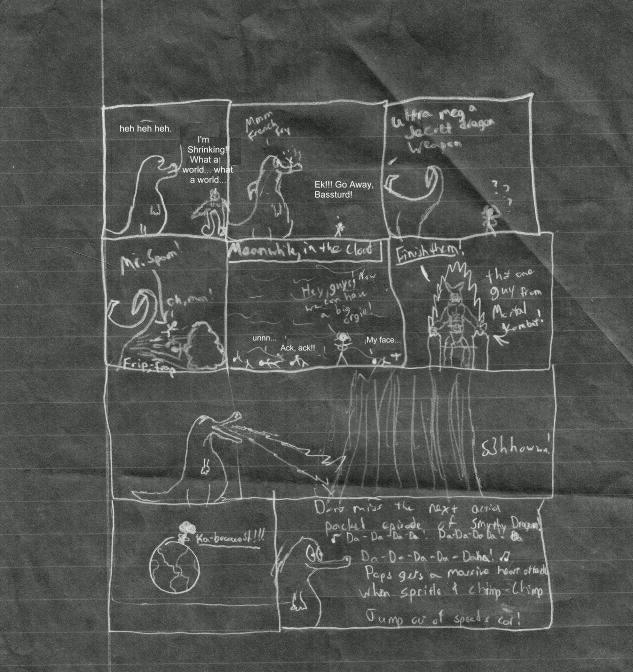 heh heh heh.
I'm
Shrinking!!
What a
world... what
a world...
Mmm
French
fry
Ek!!! Go Away,
Bassturd!
Ultra mega
Secret dragon
Weapon
? ?
?
Mr. Spoon!
Oh, man!
Frip-Frop
Meanwhile, in the Cloud
Hey, guys! Now
we can have
a big
orgie!
unnn...
Ack, ack!!
My face...
Finish them!
that one
guy from
Mortal
Kombat!
Shhowwa!
Ka-booooost!!!
Don't miss the next action
packet episode of Smythy Dragon!
♪ Da-Da-Da-Da! Da-Da-Da Da!
Da-Da-Da-Da-Daha! ♫
Pops gets a massive heart attack
when spritle & Chimp-Chimp
Jump out of speeds car!